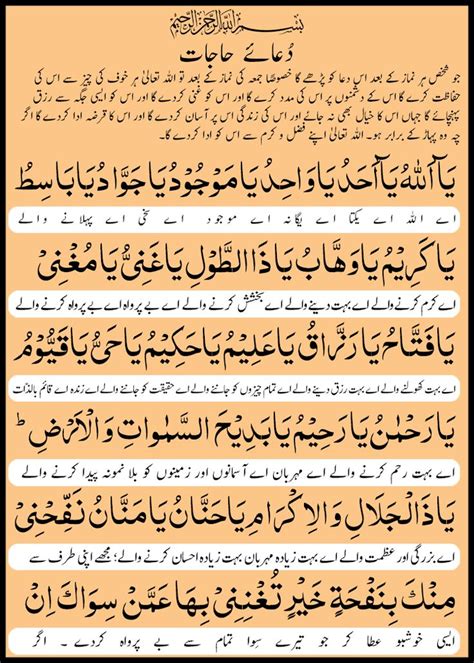 بِسْمِ اللهِ الرَّحْمٰنِ الرَّحِيْمِ
دُعائے حاجات
جو شخص ہر نماز کے بعد اس دعا کو پڑھے گا خصوصًا جمعہ کی نماز کے بعد تو اللہ تعالیٰ ہر خوف کی چیز سے اس کی
حفاظت کرے گا اس کے دشمنوں پر اس کی مدد کرے گا اور اس کو غنی کردے گا اور اس کو ایسی جگہ سے رزق
پہنچائے گا جہاں اس کا خیال بھی نہ جائے اور اس کی زندگی اس پر آسان کردے گا اور اس کا قرضہ ادا کردے گا اگر
چہ وہ پہاڑ کے برابر ہو۔ اللہ تعالیٰ اپنے فضل و کرم سے اس کو ادا کردے گا۔
يَآ اَللّٰهُ يَآ اَحَدُ يَا وَاحِدُ يَا مَوْجُوْدُ يَا جَوَّادُ يَا بَاسِطُ
اے اللہ اے یکتا اے یگانہ اے موجود اے سخی اے پھیلانے والے
يَا كَرِيْمُ يَا وَهَّابُ يَا ذَا الطَّوْلِ يَا غَنِيُّ يَا مُغْنِيْ
اے کرم کرنے والے اے بہت دینے والے اے بخشش کرنے والے اے بے پرواہ اے بے پرواہ کرنے والے
يَا فَتَّاحُ يَا رَزَّاقُ يَا عَلِيْمُ يَا حَكِيْمُ يَا حَيُّ يَا قَيُّوْمُ
اے بہت کھولنے والے اے بہت رزق دینے والے اے تمام چیزوں کو جاننے والے اے حقیقت کو جاننے والے اے زندہ اے قائم بالذات
يَا رَحْمٰنُ يَا رَحِيْمُ يَا بَدِيْعَ السَّمٰوٰتِ وَالْاَرْضِ ؕ
اے بہت رحم کرنے والے اے مہربان اے آسمانوں اور زمینوں کو بلا نمونہ پیدا کرنے والے
يَا ذَا الْجَلَالِ وَالْاِكْرَامِ يَا حَنَّانُ يَا مَنَّانُ نَفِّحْنِيْ
اے بزرگی اور عظمت والے اے بہت زیادہ مہربان بہت زیادہ احسان کرنے والے؛ مجھے اپنی طرف سے
مِنْكَ بِنَفْحَةِ خَيْرٍ تُغْنِنِيْ بِهَا عَمَّنْ سِوَاكَ اِنْ
ایسی خوشبو عطا کر جو تیرے سوا تمام سے بے پرواہ کردے ۔ اگر